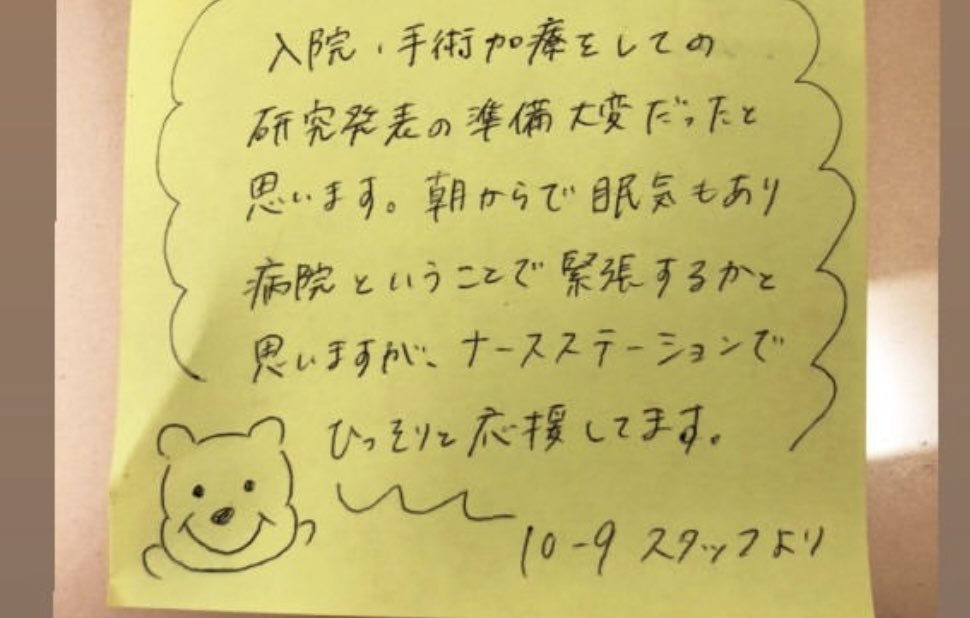 入院、手術加療をしての
研究発表の準備大変だったと
思います。朝からで眠気もあり
病院ということで緊張するかと
思いますが、ナースステーションで
ひっそりと応援してます。
10-9 スタッフより